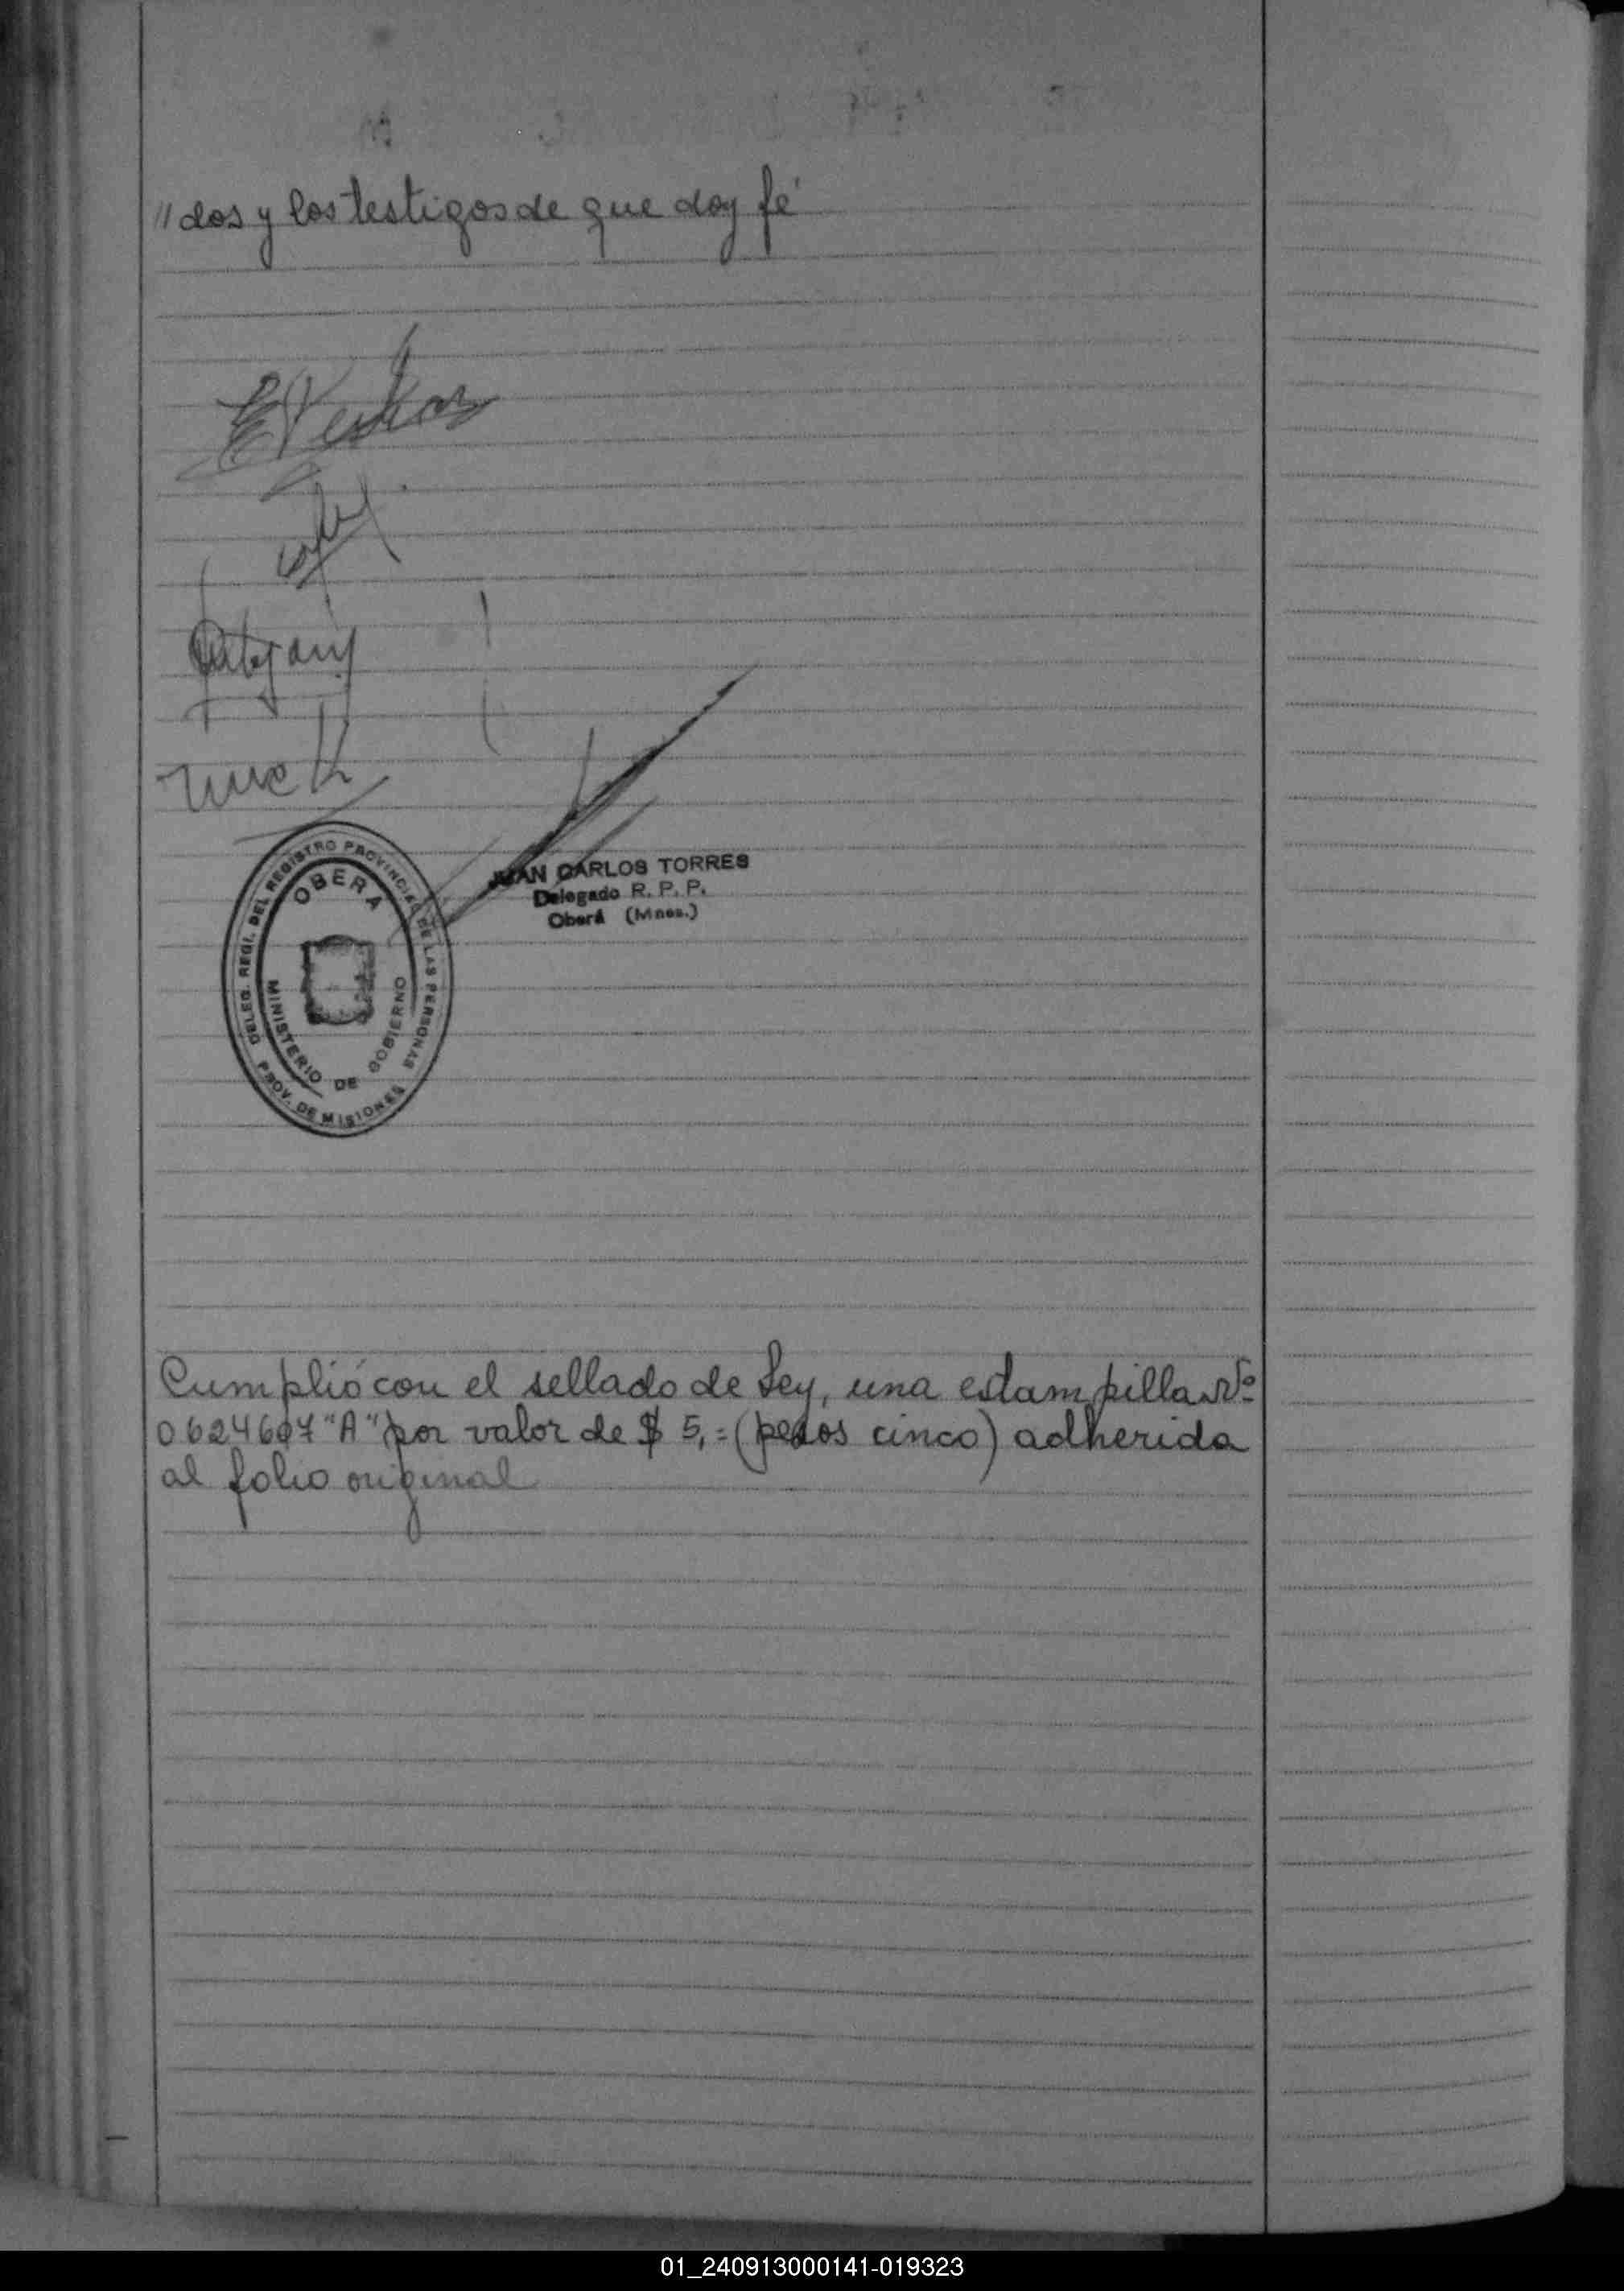 // dos y los testigos de que doy fé
JUAN CARLOS TORRES
Delegado R. P. P.
Oberá (Mnes.)
DELEG. REGI. DEL REGISTRO PROVINCIAL DE LAS PERSONAS
OBERA
MINISTERIO DE GOBIERNO
PROV. DE MISIONES
Cumplió con el sellado de Ley, una estampilla Nº
0624607 "A" por valor de $ 5,= (pesos cinco) adherida
al folio original
01_240913000141-019323